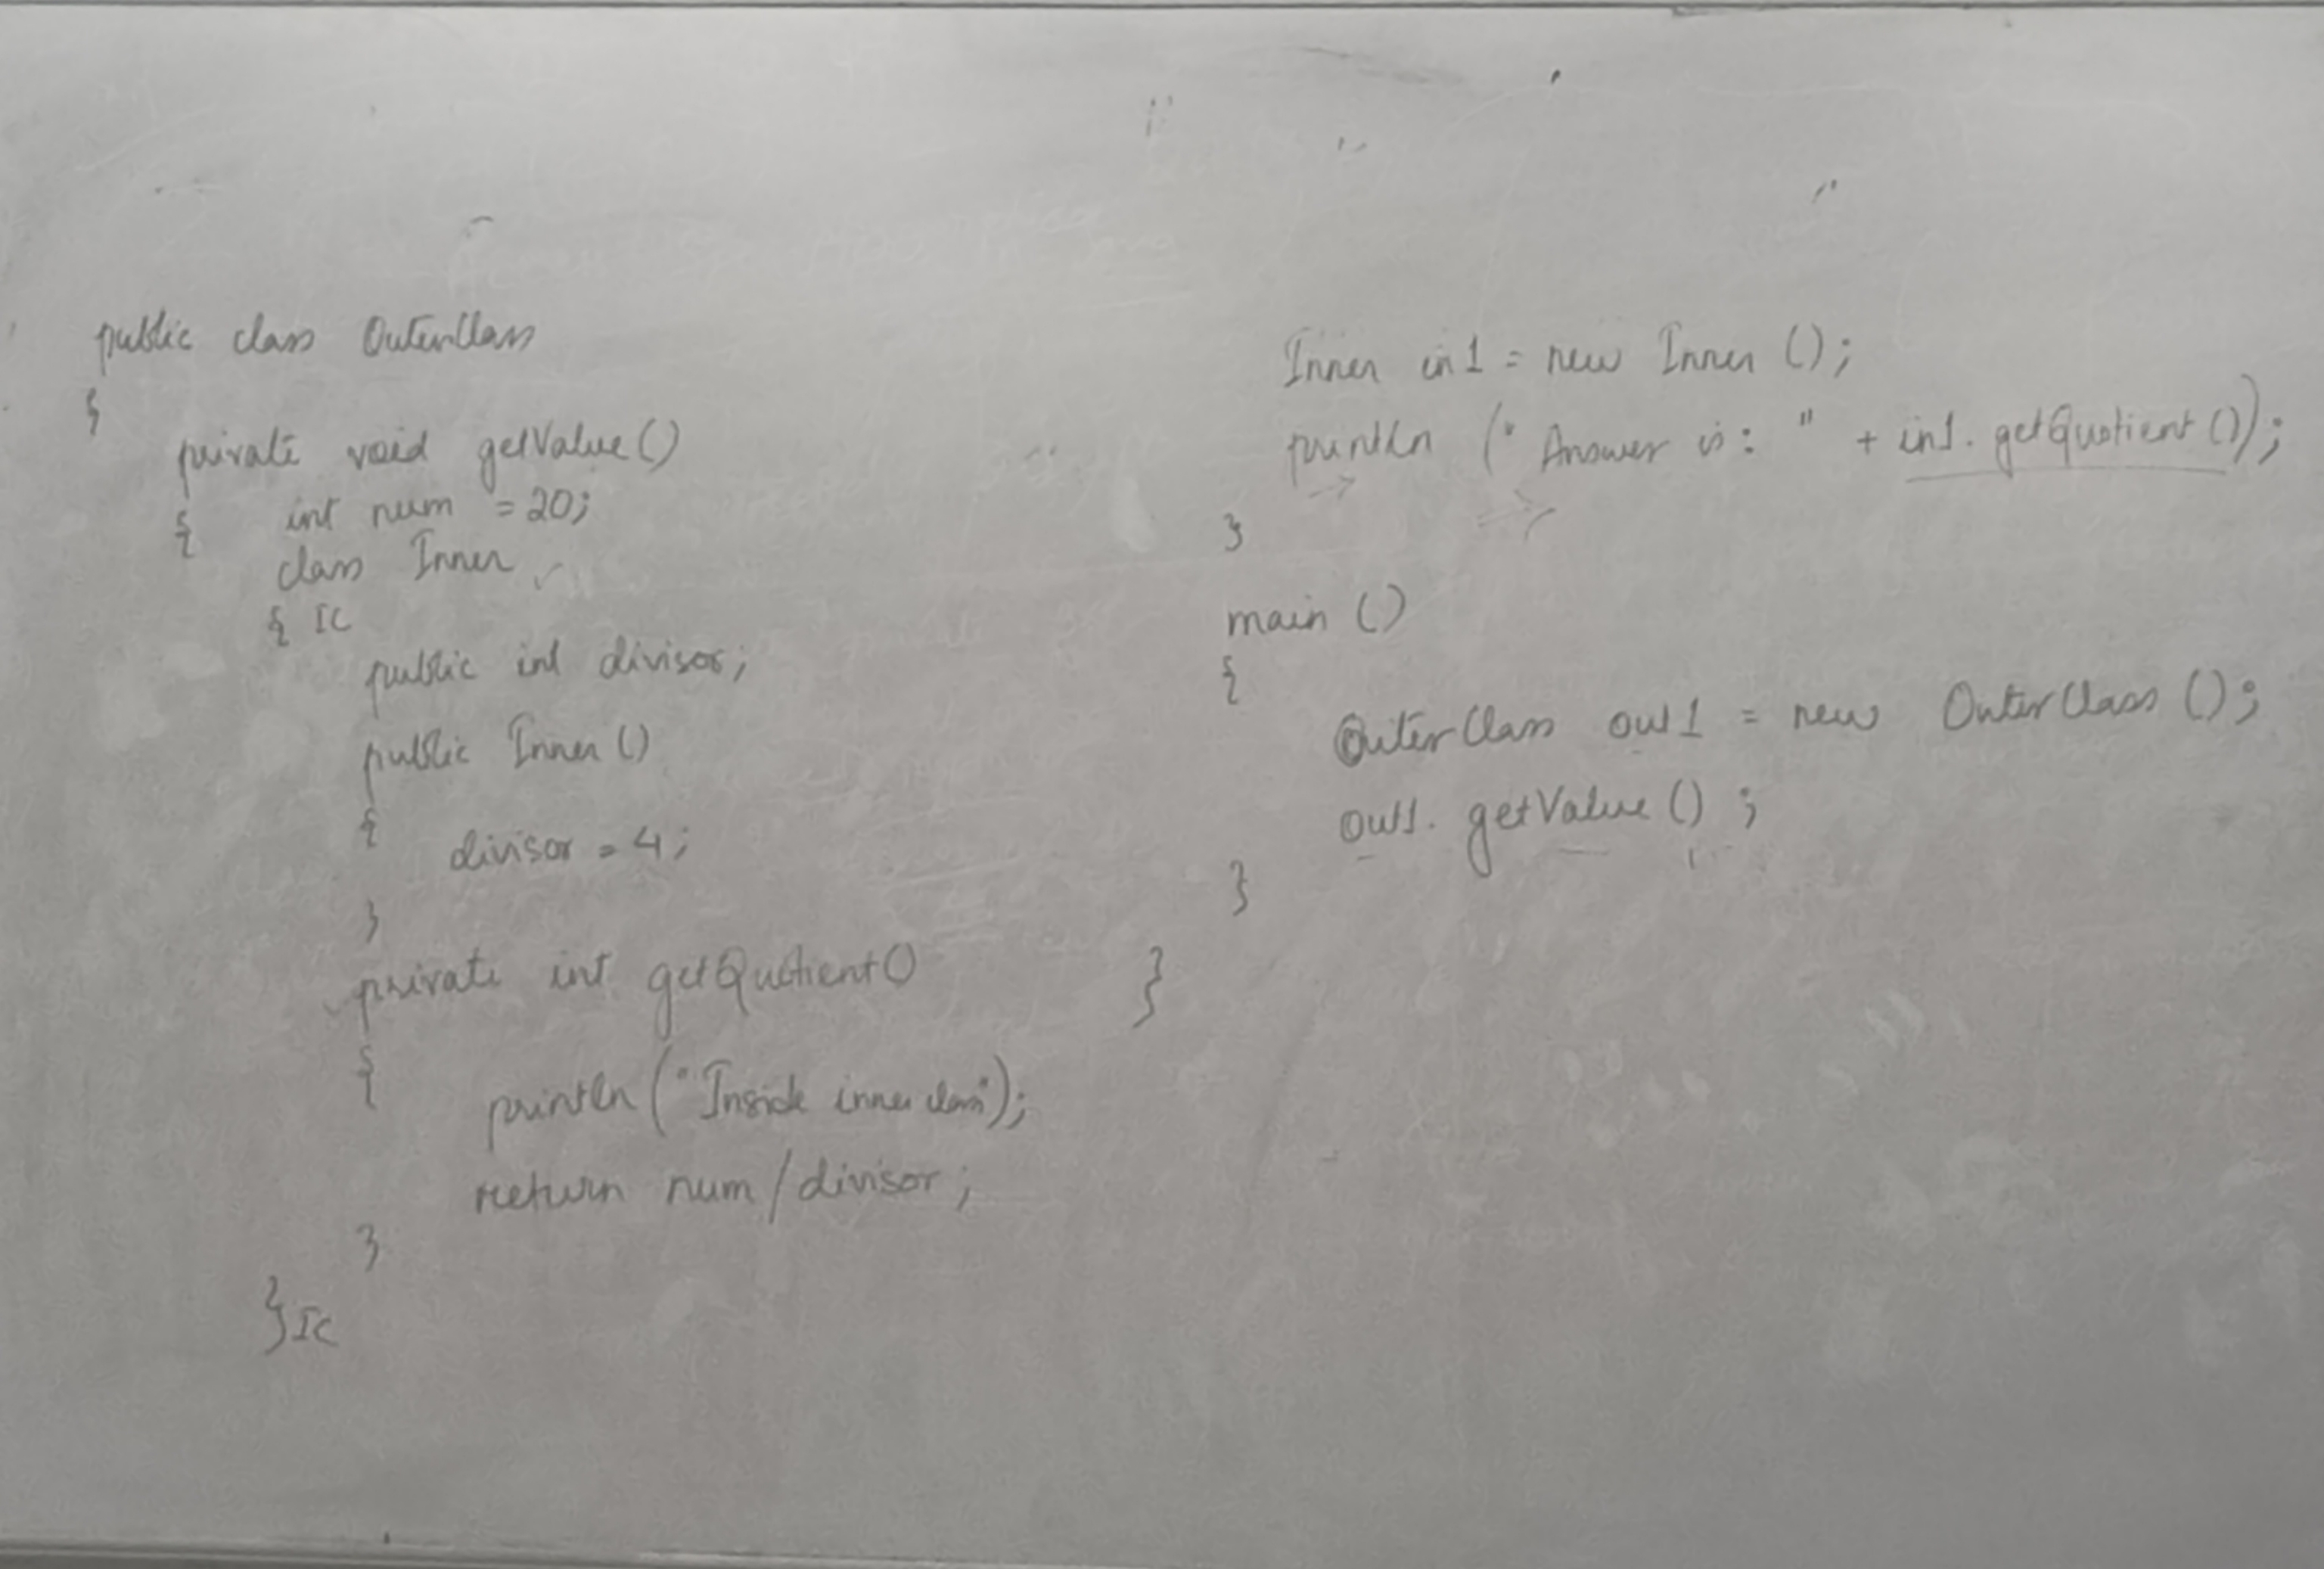 public class OuterClass
{
private void getValue()
{ int num = 20;
class Inner
{ IC
public int divisor;
public Inner()
{
divisor = 4;
}
private int getQuotient()
{
println("Inside inner class");
return num/divisor;
}
}IC
Inner in1 = new Inner();
println ("Answer is: " + in1.getQuotient());
}
main ()
{
OuterClass out1 = new OuterClass();
out1. getValue();
}
}